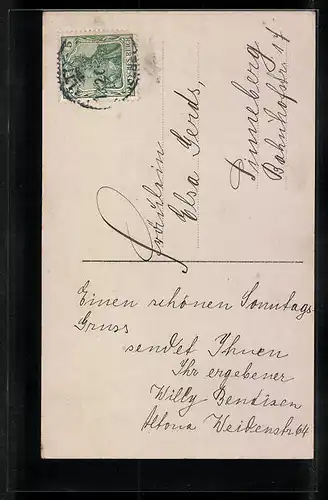 Fräulein
Elsa Gerds,
Pinneberg
Bahnhofstr. 17
Einen schönen Sonntags-
Gruss
sendet Ihnen
Ihr ergebener
Willy Bendixen
Altona Weidenstr 64